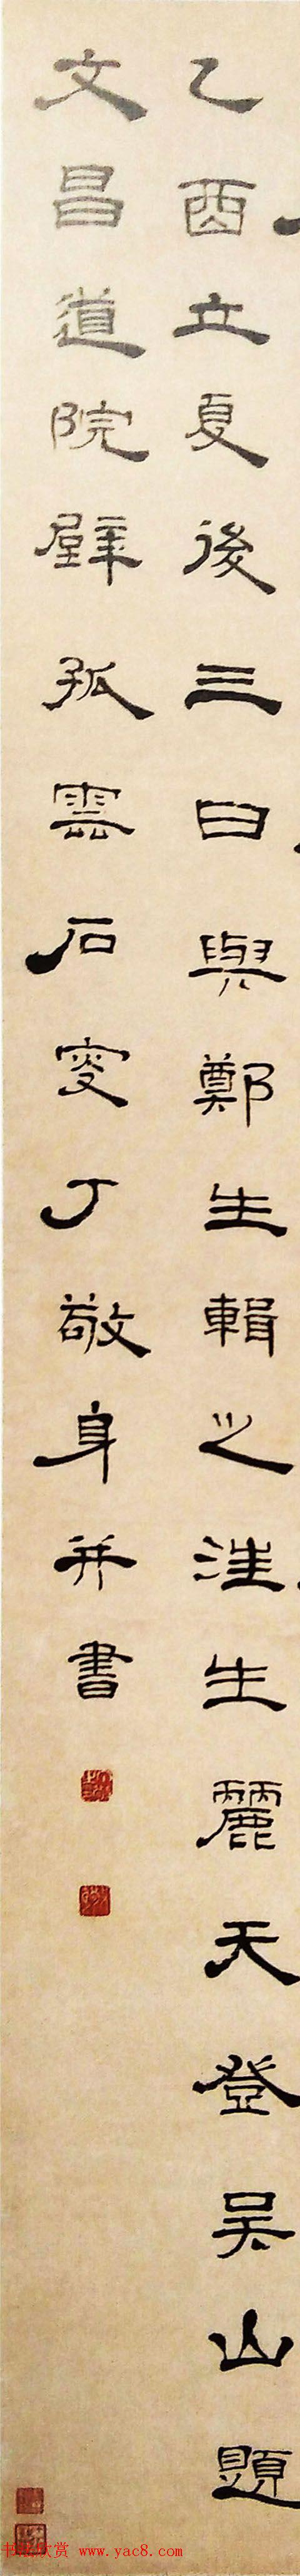 乙酉立夏後三日與鄭生輯之汪生麗天登吴山題
文昌道院壁孤雲石叟丁敬身并書
书法欣赏 www.yac8.com